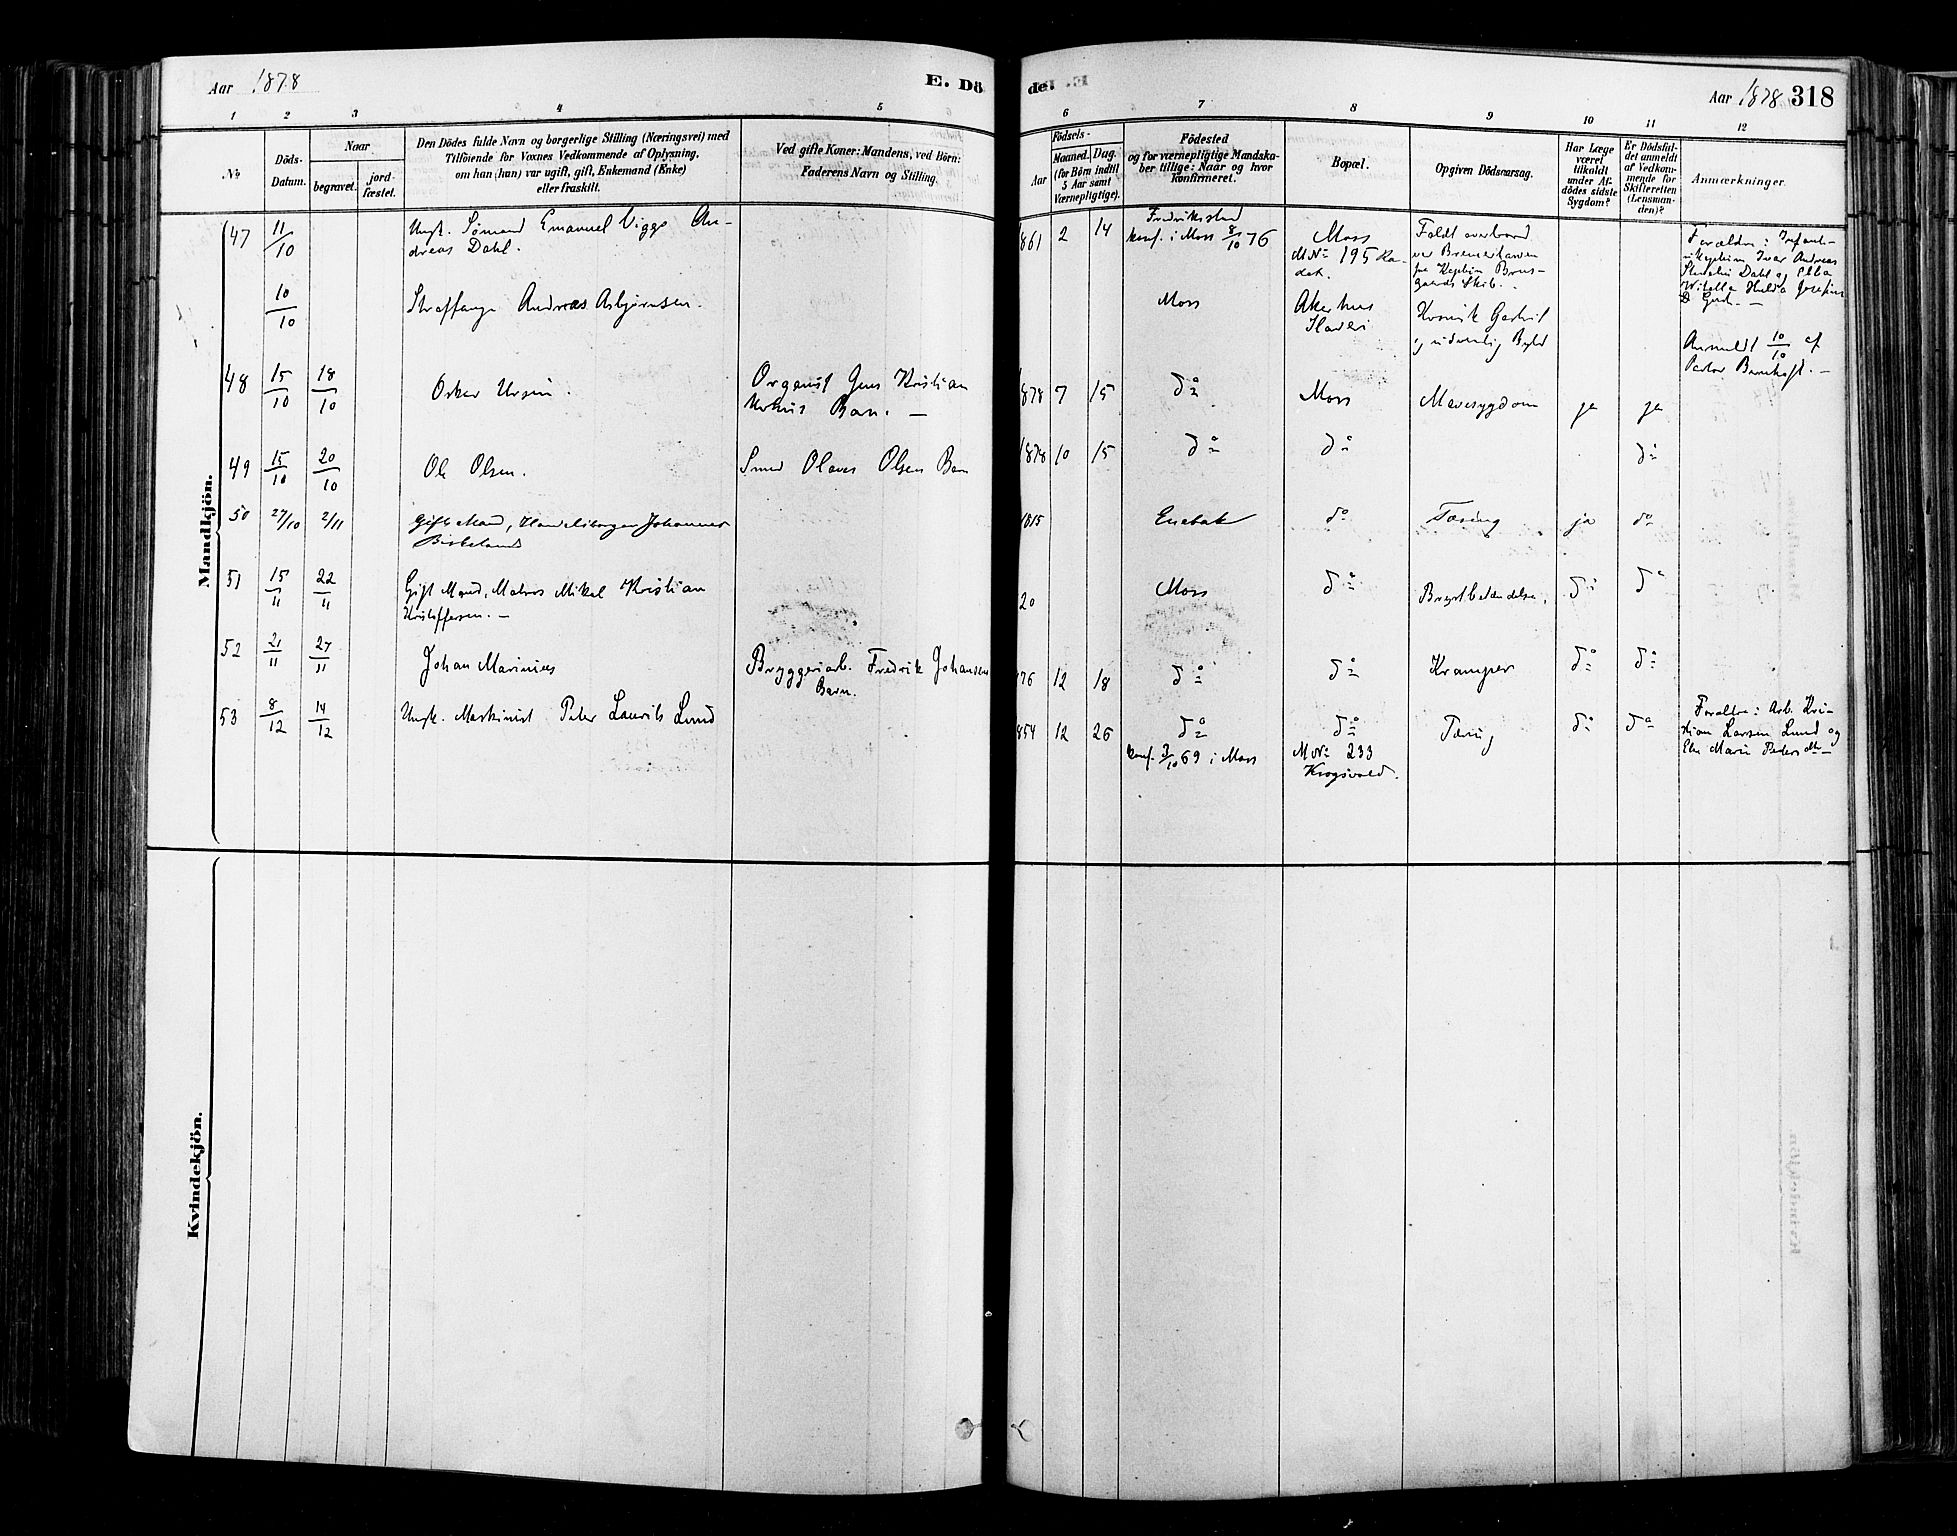 Aar 1878
E. Dö
de.
Aar 1878 318
1 2 3 4 5 6 7 8 9 10 11 12
No
Döds-
Datum.
Naar
begravet.
jord-
fæstet.
Den Dödes fulde Navn og borgerlige Stilling (Næringsvei) med
Tilföiende for Voxnes Vedkommende af Oplysning,
om han (hun) var ugift, gift, Enkemand (Enke)
eller fraskilt.
Ved gifte Koner: Mandens, ved Börn:
Faderens Navn og Stilling.
Födsels-
Aar
Maaned. Dag.
(for Börn indtil
5 Aar samt
Værnepligtige).
Födested
og for værnepligtige Mandska-
ber tillige: Naar og hvor
konfirmeret.
Bopæl.
Opgiven Dödsaarsag.
Har Læge
været
tilkaldt
under Af-
dödes sidste
Sygdom?
Er Dödsfal-
det anmeldt
af Vedkom-
mende for
Skifteretten
(Lensman-
den)?
Anmærkninger.
Mandkjön.
47 11/10
Ungk. Sømand Emanuel Viggo An-
dreas Dahl.
861 2 14
Fredrikstad
konf. i Moss 8/10 76
Moss
MNo 195
Faldt overbord
ved Bremerhaven
fra Kaptein
Skib.
Forældre:
Kaptein Ivar Andreas
Dahl og
Hulda Josefine
10/10
Straffange Andreas Asbjørnsen.
Moss
Akershus
Slaveri
Kronisk
og udvendig Byld
Anmeldt 10/10 af
Pastor
48 15/10 18/10
Oskar Ursin.
Organist Jens Kristian
Ursins Barn. —
1878 7 15
do
Moss
Mavesygdom
ja ja
49 15/10 20/10
Ole Olsen.
Smed Olaves Olsens Barn
1878 10 15
do do do
50 27/10 2/11
Gift Mand, Handelsborger Johannes
Birkeland
1815
Enebak
do
Tæring
ja do
51 15/11 22/11
Gift Mand, Matros Mikal Kristian
Kristoffersen. —
20
Moss
do
Brystbetændelse.
do do
52 21/11 27/11
Johan Marinius
Bryggeriarb. Fredrik Johansens
Barn.
76 12 18
do do
Kramper
do do
53 8/12 14/12
Ungk. Maskinist Peter Laurits Lund
854 12 26
do
konf. 3/10 69 i Moss
do
MNo 233
Krogsvold.
Tæring
do do
Forældre: Arb. Kri-
stian Larsen Lund og
Else Marie Pedersdtr —
Kvindekjön.